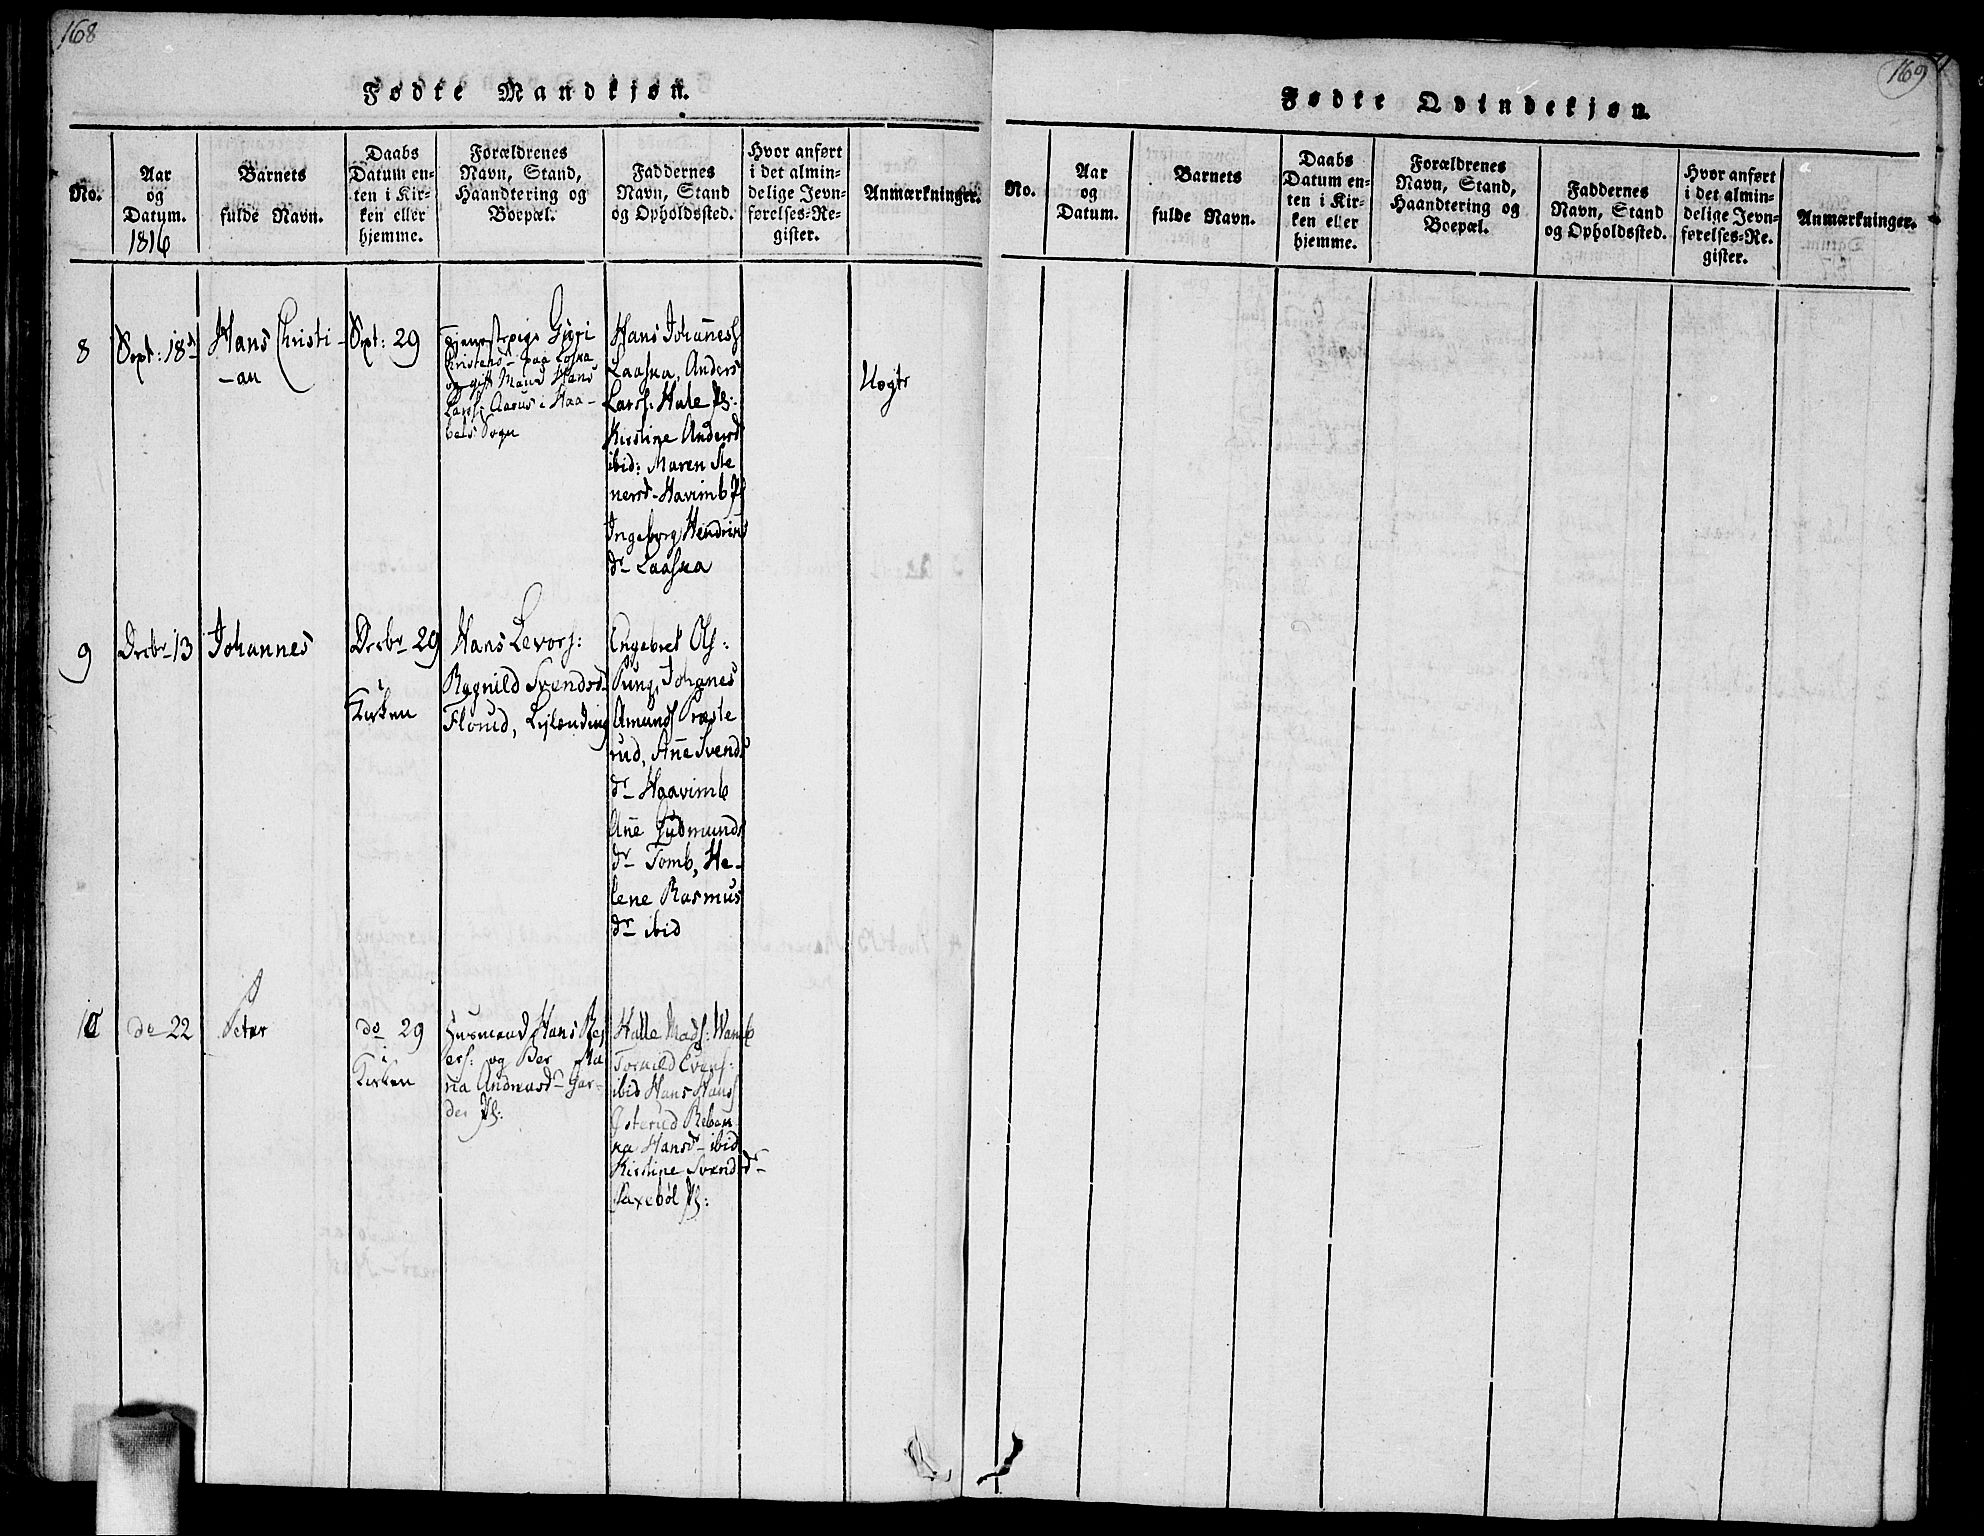 168
Fødte Mandkjøn.
No.
Aar
og
Datum.
1816
Barnets
fulde Navn.
Daabs
Datum en-
ten i Kir-
ken eller
hjemme.
Forældrenes
Navn, Stand,
Haandtering og
Boepæl.
Faddernes
Navn, Stand
og Opholdssted.
Hvor anført
i det almin-
delige Jevn-
førelses-Re-
gister.
Anmærkninger.
8
Sept: 18d
Hans Christi-
-an
Sept: 29
Tjenestepige Guri
Christensd paa
og gift Mand Hans
Larss: Aarus i Haa-
bøls Sogn
Hans Johanness
Laaska, Anders
Larss: Hale Pl:
Kirstine Andersd
ibid: Maren Ste
nersd- Havimb Pl
Ingeborg Hendrics
dr Laaska
Uægte
9
Decbr 13
Johannes
Decbr 29
i
Kirken
Hans Levors:
Ragnild Svendsd
Florud, Leilænding
Engebret Ols:
Pung, Johanes
Amunds Præste
rud, Ane Svends
dr Haavimb
Ane Gudmunds
dr Tomb, He-
lene Rasmus
dr ibid
10
do 22
Peter
do 29
i
Kirken
Husmand Hans
ers: og Ber
na Andreasd- Gar-
der Pl:
Halle Mads: Wamb
Tornild Evens:
ibid Hans Hans
Østerud Reben
ka Hansd- ibid
Kirstine Svendsdr
Saxebøl Pl:
169
Fødte Qvindekjøn.
No.
Aar
og
Datum.
Barnets
fulde Navn.
Daabs
Datum en-
ten i Kir-
ken eller
hjemme.
Forældrenes
Navn, Stand,
Haandtering og
Boepæl.
Faddernes
Navn, Stand
og Opholdssted.
Hvor anført
i det almin-
delige Jevn-
førelses-Re-
gister.
Anmærkninger.